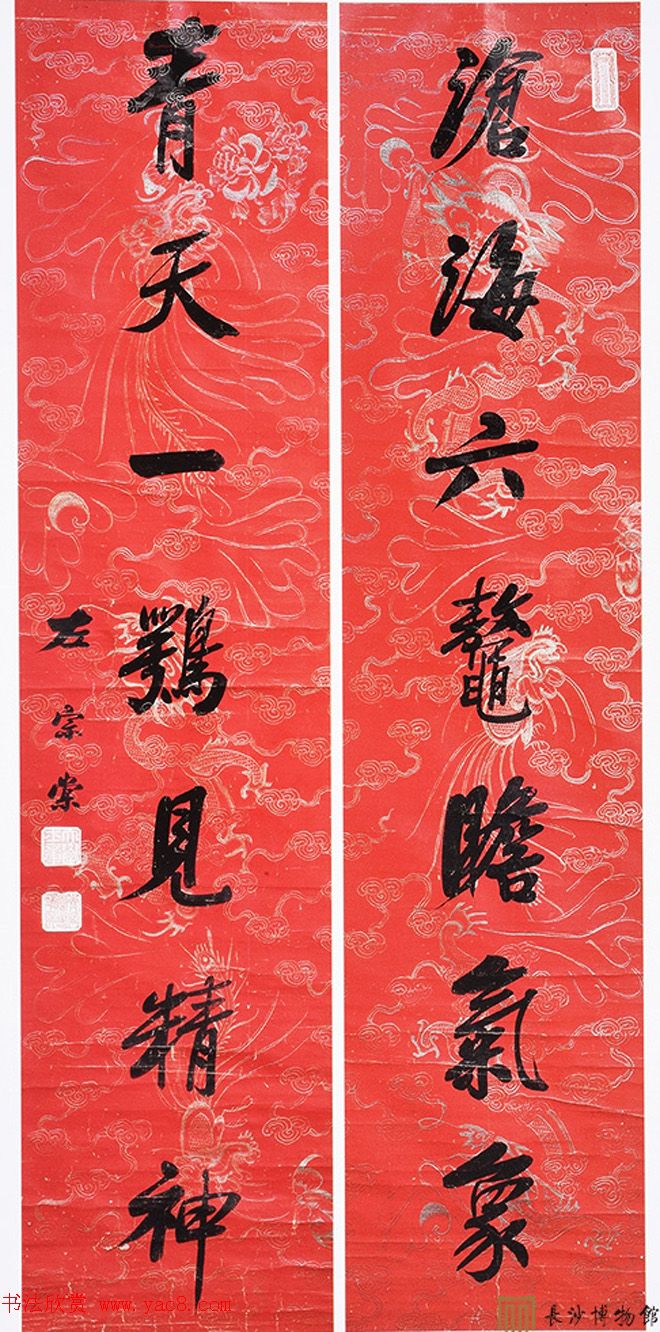 滄海六鼇瞻氣象
青天一鶚見精神
左宗棠
书法欣赏 www.yac8.com
長沙博物館